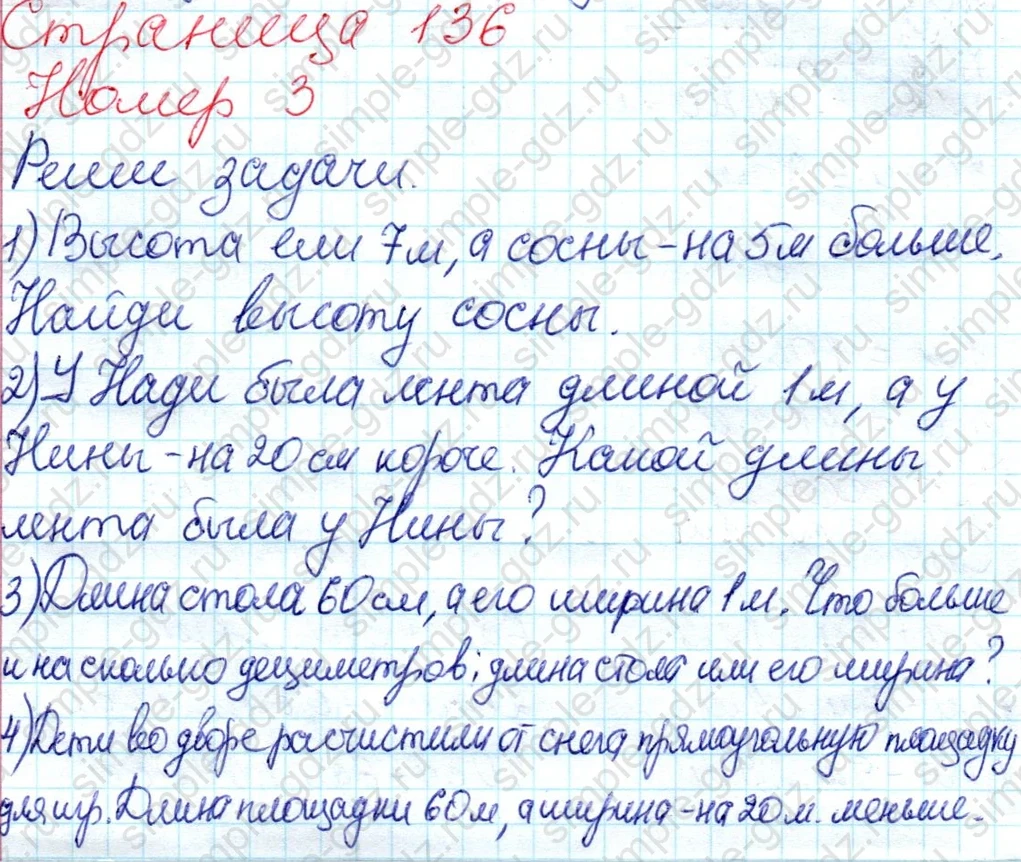 Страница 136
Номер 3
Реши задачи.
1) Высота ели 7м, а сосны - на 5м больше.
Найди высоту сосны.
2) У Нади была лента длиной 1м, а у
Нины - на 20 см короче. Какой длины
лента была у Нины?
3) Длина стола 60см, а его ширина 1м. Что больше
и на сколько дециметров: длина стола или его ширина?
4) Дети во дворе расчистили от снега прямоугольную площадку
для игр. Длина площадки 60м, а ширина - на 20м. меньше.
simple-gdz.ru